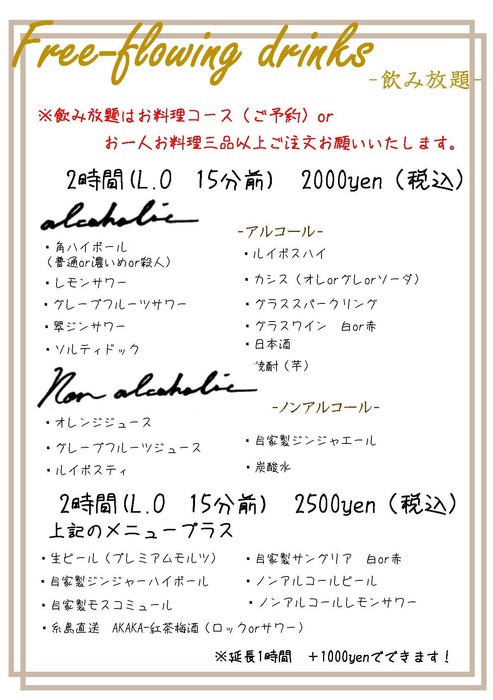 Free-flowing drinks
-飲み放題-
※飲み放題はお料理コース（ご予約）or
お一人お料理三品以上ご注文お願いいたします。
2時間(L.O 15分前) 2000yen（税込）
alcoholic
-アルコール-
・角ハイボール
（普通or濃いめor殺人）
・レモンサワー
・グレープフルーツサワー
・翠ジンサワー
・ソルティドック
・ルイボスハイ
・カシス（オレorグレorソーダ）
・グラススパークリング
・グラスワイン 白or赤
・日本酒
焼酎（芋）
Non alcoholic
-ノンアルコール-
・オレンジジュース
・グレープフルーツジュース
・ルイボスティ
・自家製ジンジャエール
・炭酸水
2時間(L.O 15分前) 2500yen（税込）
上記のメニュープラス
・生ビール（プレミアムモルツ）
・自家製ジンジャーハイボール
・自家製モスコミュール
・糸島直送 AKAKA-紅茶梅酒（ロックorサワー）
・自家製サングリア 白or赤
・ノンアルコールビール
・ノンアルコールレモンサワー
※延長1時間 +1000yenでできます！